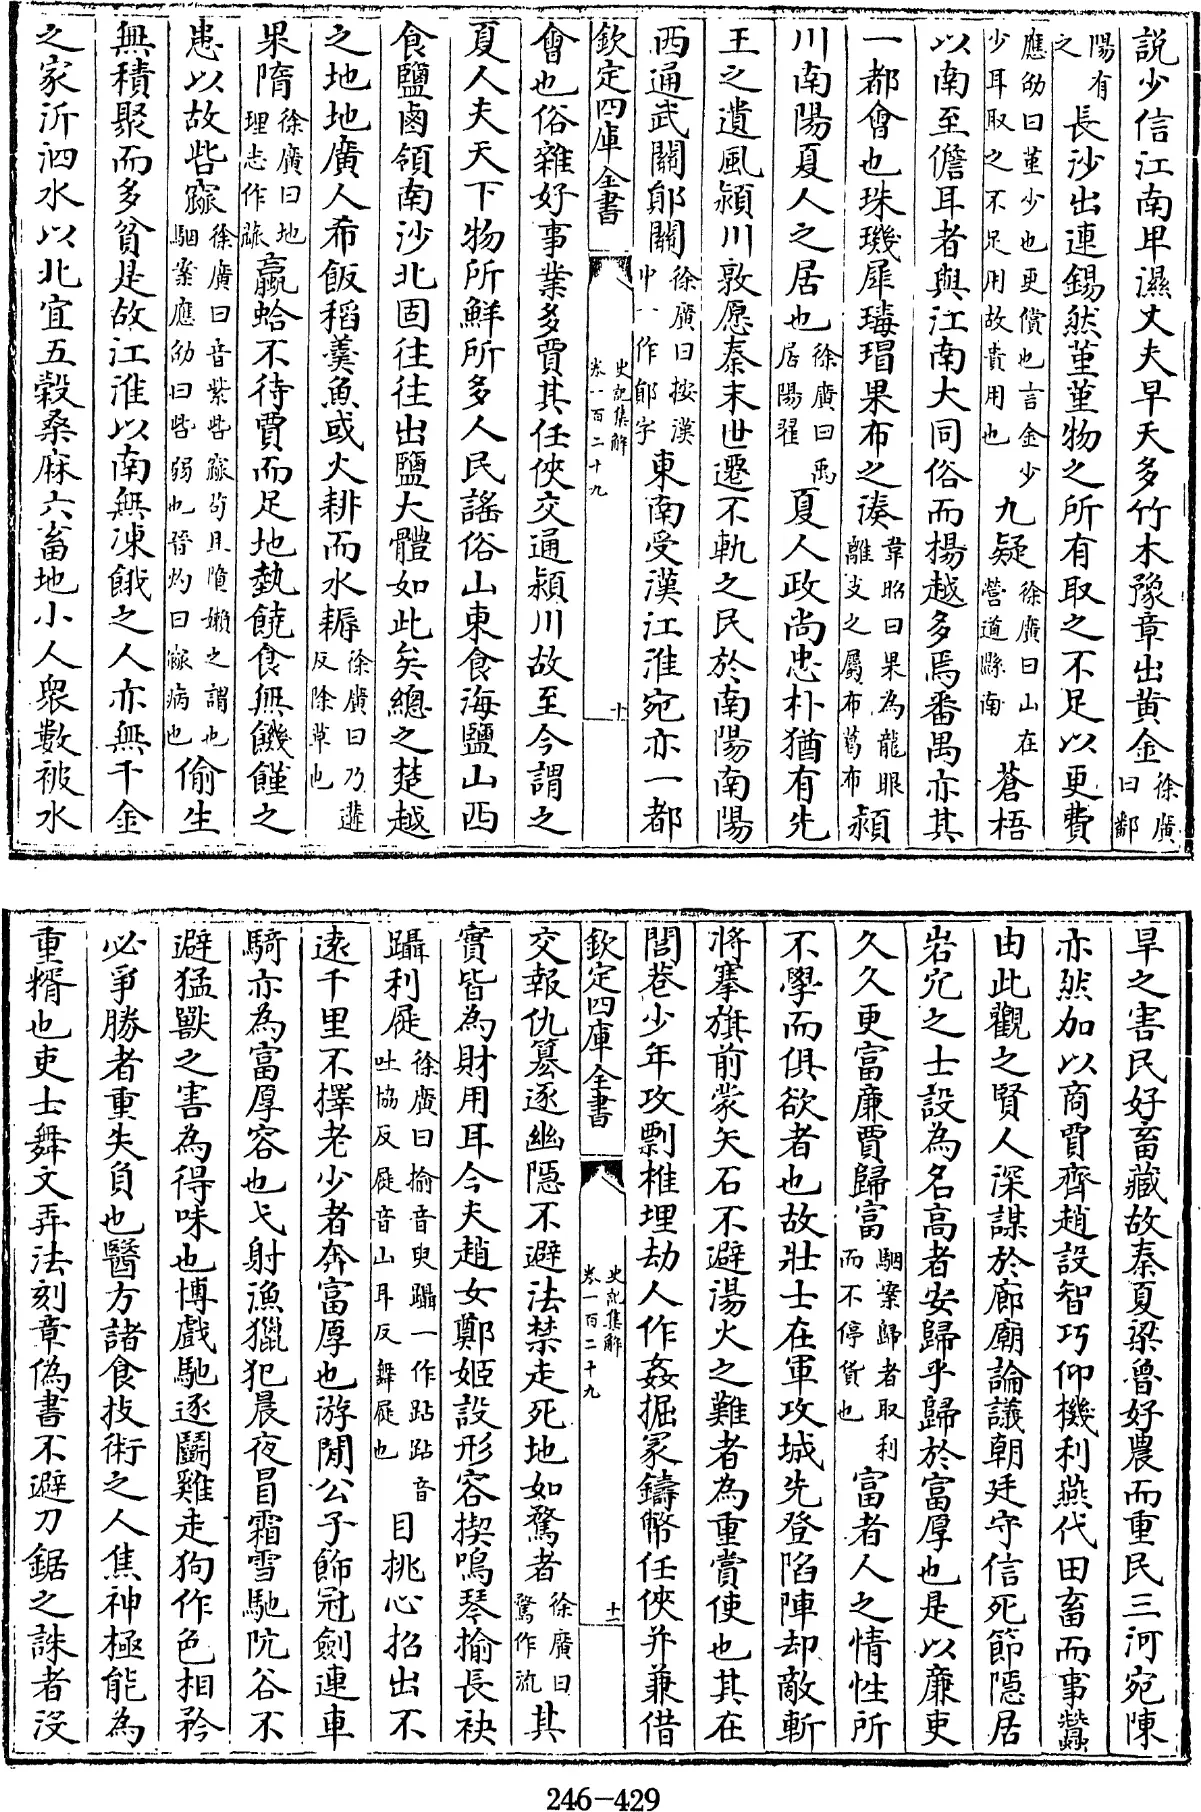 說少信江南卑濕丈夫早夭多竹木豫章出黄金徐廣曰鄱
陽有之長沙出連錫然堇堇物之所有取之不足以更費
應劭曰堇少也更償也言金少少耳取之不足用故貴用也九疑徐廣曰山在營道縣南蒼梧
以南至儋耳者與江南大同俗而楊越多焉番禺亦其
一都會也珠璣犀瑇瑁果布之湊韋昭曰果為龍眼離支之屬布葛布潁
川南陽夏人之居也徐廣曰禹居陽翟夏人政尚忠朴猶有先
王之遺風潁川敦愿秦末世遷不軌之民於南陽南陽
西通武關鄖關徐廣曰按漢中一作鄖字東南受漢江淮宛亦一都
欽定四庫全書 史記集解卷一百二十九 十
會也俗雜好事業多賈其任俠交通潁川故至今謂之
夏人夫天下物所鮮所多人民謠俗山東食海鹽山西
食鹽鹵領南沙北固往往出鹽大體如此矣總之楚越
之地地廣人希飯稻羹魚或火耕而水耨徐廣曰乃遘反除草也
果隋徐廣曰地理志作蓏蠃蛤不待賈而足地埶饒食無饑饉之
患以故呰窳徐廣曰音紫呰窳苟且惰嬾之謂也駰案應劭曰呰弱也晉灼曰窳病也偷生
無積聚而多貧是故江淮以南無凍餓之人亦無千金
之家沂泗水以北宜五穀桑麻六畜地小人衆數被水
旱之害民好畜藏故秦夏梁魯好農而重民三河宛陳
亦然加以商賈齊趙設智巧仰機利燕代田畜而事蠶
由此觀之賢人深謀於廊廟論議朝廷守信死節隱居
岩穴之士設為名高者安歸乎歸於富厚也是以廉吏
久久更富廉賈歸富駰案歸者取利而不停貨也富者人之情性所
不學而俱欲者也故壯士在軍攻城先登陷陣却敵斬
將搴旗前蒙矢石不避湯火之難者為重賞使也其在
閭巷少年攻剽椎埋劫人作姦掘冢鑄幣任俠并兼借
欽定四庫全書 史記集解卷一百二十九 十一
交報仇簒逐幽隱不避法禁走死地如騖者徐廣曰騖作流其
實皆為財用耳今夫趙女鄭姬設形容揳鳴琴揄長袂
躡利屣徐廣曰揄音臾躡一作跕跕音吐協反屣音山耳反舞屣也目挑心招出不
遠千里不擇老少者奔富厚也游閒公子飾冠劍連車
騎亦為富厚容也弋射漁獵犯晨夜冒霜雪馳阬谷不
避猛獸之害為得味也博戲馳逐鬬雞走狗作色相矜
必爭勝者重失負也醫方諸食技術之人焦神極能為
重糈也吏士舞文弄法刻章偽書不避刀鋸之誅者沒
246-429